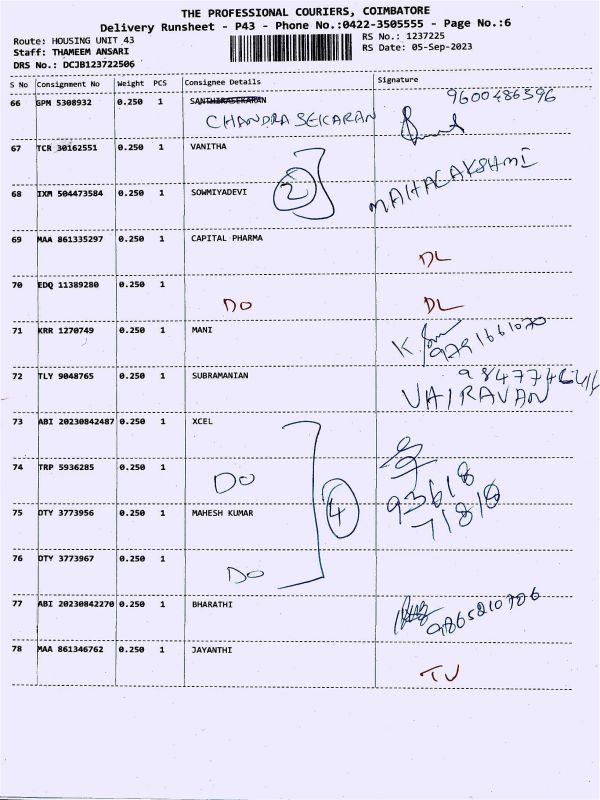 THE PROFESSIONAL COURIERS, COIMBATORE
Delivery Runsheet - P43 - Phone No.:0422-3505555 - Page No.:6
Route: HOUSING UNIT 43
RS No.: 1237225
Staff: THAMEEM ANSARI
RS Date: 05-Sep-2023
DRS No.: DCJB123722506
S No Consignment No Weight PCS Consignee Details Signature
66 GPM 5308932 0.250 1 SANTHIRASEKARAN 9600486396
CHANDRASEKARAN
67 TCR 30162551 0.250 1 VANITHA
68 IXM 504473584 0.250 1 SOWMIYADEVI 2 MAHALAKSHMI
69 MAA 861335297 0.250 1 CAPITAL PHARMA
DL
70 EDQ 11389280 0.250 1
DO DL
71 KRR 1270749 0.250 1 MANI 9791661070
72 TLY 9048765 0.250 1 SUBRAMANIAN
VAIRAVAN
73 ABI 20230842487 0.250 1 XCEL
74 TRP 5936285 0.250 1
DO
75 DTY 3773956 0.250 1 MAHESH KUMAR 4 93618
71810
76 DTY 3773967 0.250 1
DO
77 ABI 20230842270 0.250 1 BHARATHI 9865210706
78 MAA 861346762 0.250 1 JAYANTHI
TV